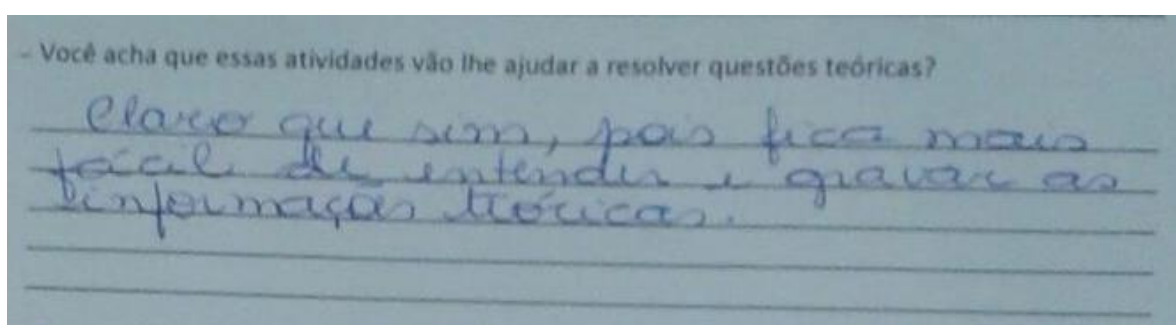 - Você acha que essas atividades vão lhe ajudar a resolver questões teóricas?
Claro que sim, pois fica mais
facil de entender e gravar as
informações teóricas.